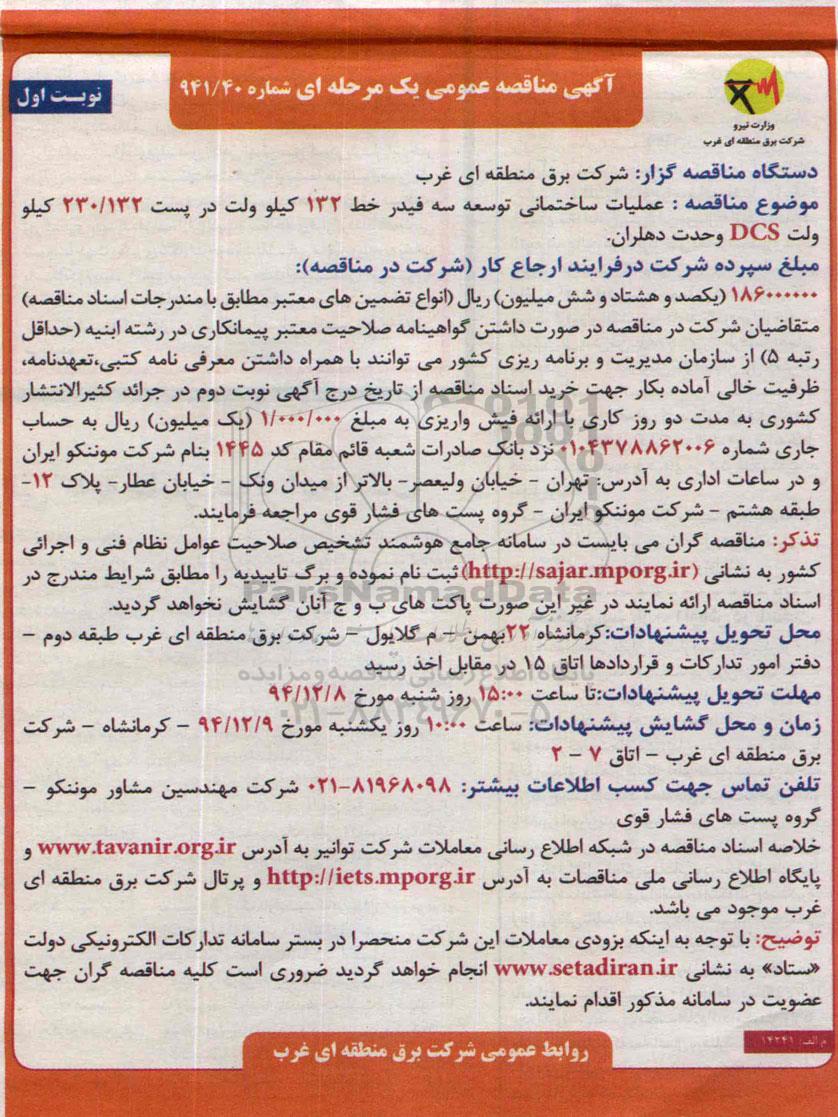 وزارت نیرو
شرکت برق منطقه ای غرب
آگهی مناقصه عمومی یک مرحله ای شماره ۹۴۱/۴۰
نوبت اول
دستگاه مناقصه گزار: شرکت برق منطقه ای غرب
موضوع مناقصه : عملیات ساختمانی توسعه سه فیدر خط ۱۳۲ کیلو ولت در پست ۲۳۰/۱۳۲ کیلو
ولت DCS وحدت دهلران.
مبلغ سپرده شرکت درفرایند ارجاع کار (شرکت در مناقصه):
۱۸۶۰۰۰۰۰۰ (یکصد و هشتاد و شش میلیون) ریال (انواع تضمین های معتبر مطابق با مندرجات اسناد مناقصه)
متقاضیان شرکت در مناقصه در صورت داشتن گواهینامه صلاحیت معتبر پیمانکاری در رشته ابنیه (حداقل
رتبه ۵) از سازمان مدیریت و برنامه ریزی کشور می توانند با همراه داشتن معرفی نامه کتبی،تعهدنامه،
ظرفیت خالی آماده بکار جهت خرید اسناد مناقصه از تاریخ درج آگهی نوبت دوم در جرائد کثیرالانتشار
کشوری به مدت دو روز کاری با ارائه فیش واریزی به مبلغ ۱/۰۰۰/۰۰۰ (یک میلیون) ریال به حساب
جاری شماره ۰۱۰۴۳۷۸۸۶۲۰۰۶ نزد بانک صادرات شعبه قائم مقام کد ۱۴۴۵ بنام شرکت موننکو ایران
و در ساعات اداری به آدرس: تهران - خیابان ولیعصر- بالاتر از میدان ونک - خیابان عطار- پلاک ۱۲-
طبقه هشتم - شرکت موننکو ایران - گروه پست های فشار قوی مراجعه فرمایند.
تذکر: مناقصه گران می بایست در سامانه جامع هوشمند تشخیص صلاحیت عوامل نظام فنی و اجرائی
کشور به نشانی (http://sajar.mporg.ir) ثبت نام نموده و برگ تاییدیه را مطابق شرایط مندرج در
اسناد مناقصه ارائه نمایند در غیر این صورت پاکت های ب و ج آنان گشایش نخواهد گردید.
محل تحویل پیشنهادات:کرمانشاه ۲۲بهمن - م گلایول - شرکت برق منطقه ای غرب طبقه دوم -
دفتر امور تدارکات و قراردادها اتاق ۱۵ در مقابل اخذ رسید
مهلت تحویل پیشنهادات:تا ساعت ۱۵:۰۰ روز شنبه مورخ ۹۴/۱۲/۸
زمان و محل گشایش پیشنهادات: ساعت ۱۰:۰۰ روز یکشنبه مورخ ۹۴/۱۲/۹ - کرمانشاه - شرکت
برق منطقه ای غرب - اتاق ۷ - ۲
تلفن تماس جهت کسب اطلاعات بیشتر: ۸۱۹۶۸۰۹۸-۰۲۱ شرکت مهندسین مشاور موننکو -
گروه پست های فشار قوی
خلاصه اسناد مناقصه در شبکه اطلاع رسانی معاملات شرکت توانیر به آدرس www.tavanir.org.ir و
پایگاه اطلاع رسانی ملی مناقصات به آدرس http://iets.mporg.ir و پرتال شرکت برق منطقه ای
غرب موجود می باشد.
توضیح: با توجه به اینکه بزودی معاملات این شرکت منحصرا در بستر سامانه تدارکات الکترونیکی دولت
«ستاد» به نشانی www.setadiran.ir انجام خواهد گردید ضروری است کلیه مناقصه گران جهت
عضویت در سامانه مذکور اقدام نمایند.
م الف: ۱۴۲۴۱
روابط عمومی شرکت برق منطقه ای غرب
ParsNamadData
پایگاه اطلاع رسانی مناقصه و مزایده
۰۲۱-۸۸۳۴۹۶۷۰-۵